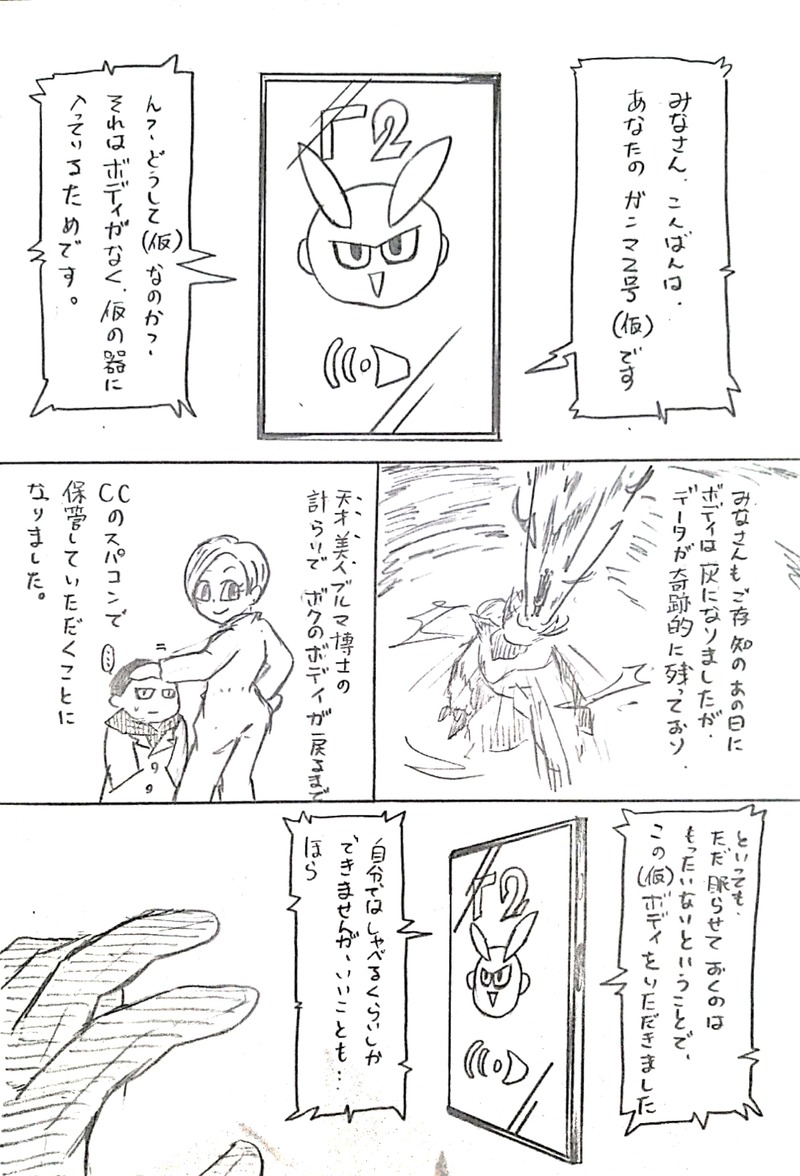 みなさん、こんばんは、
あなたの ガンマ2号(仮)です
Γ2
ん?、どうして(仮)なのか?、
それはボディがなく、仮の器に
入っているためです。
みなさんもご存知のあの日に
ボディは灰になりましたが、
データが奇跡的に残っており、
天才美人ブルマ博士の
計らいで ボクのボディが戻るまで
CCのスパコンで
保管していただくことに
なりました。
といっても、
ただ眠らせておくのは
もったいないということで、
この(仮)ボディをいただきました
Γ2
自分ではしゃべるくらいしか
できませんが、いいことも…
ほら